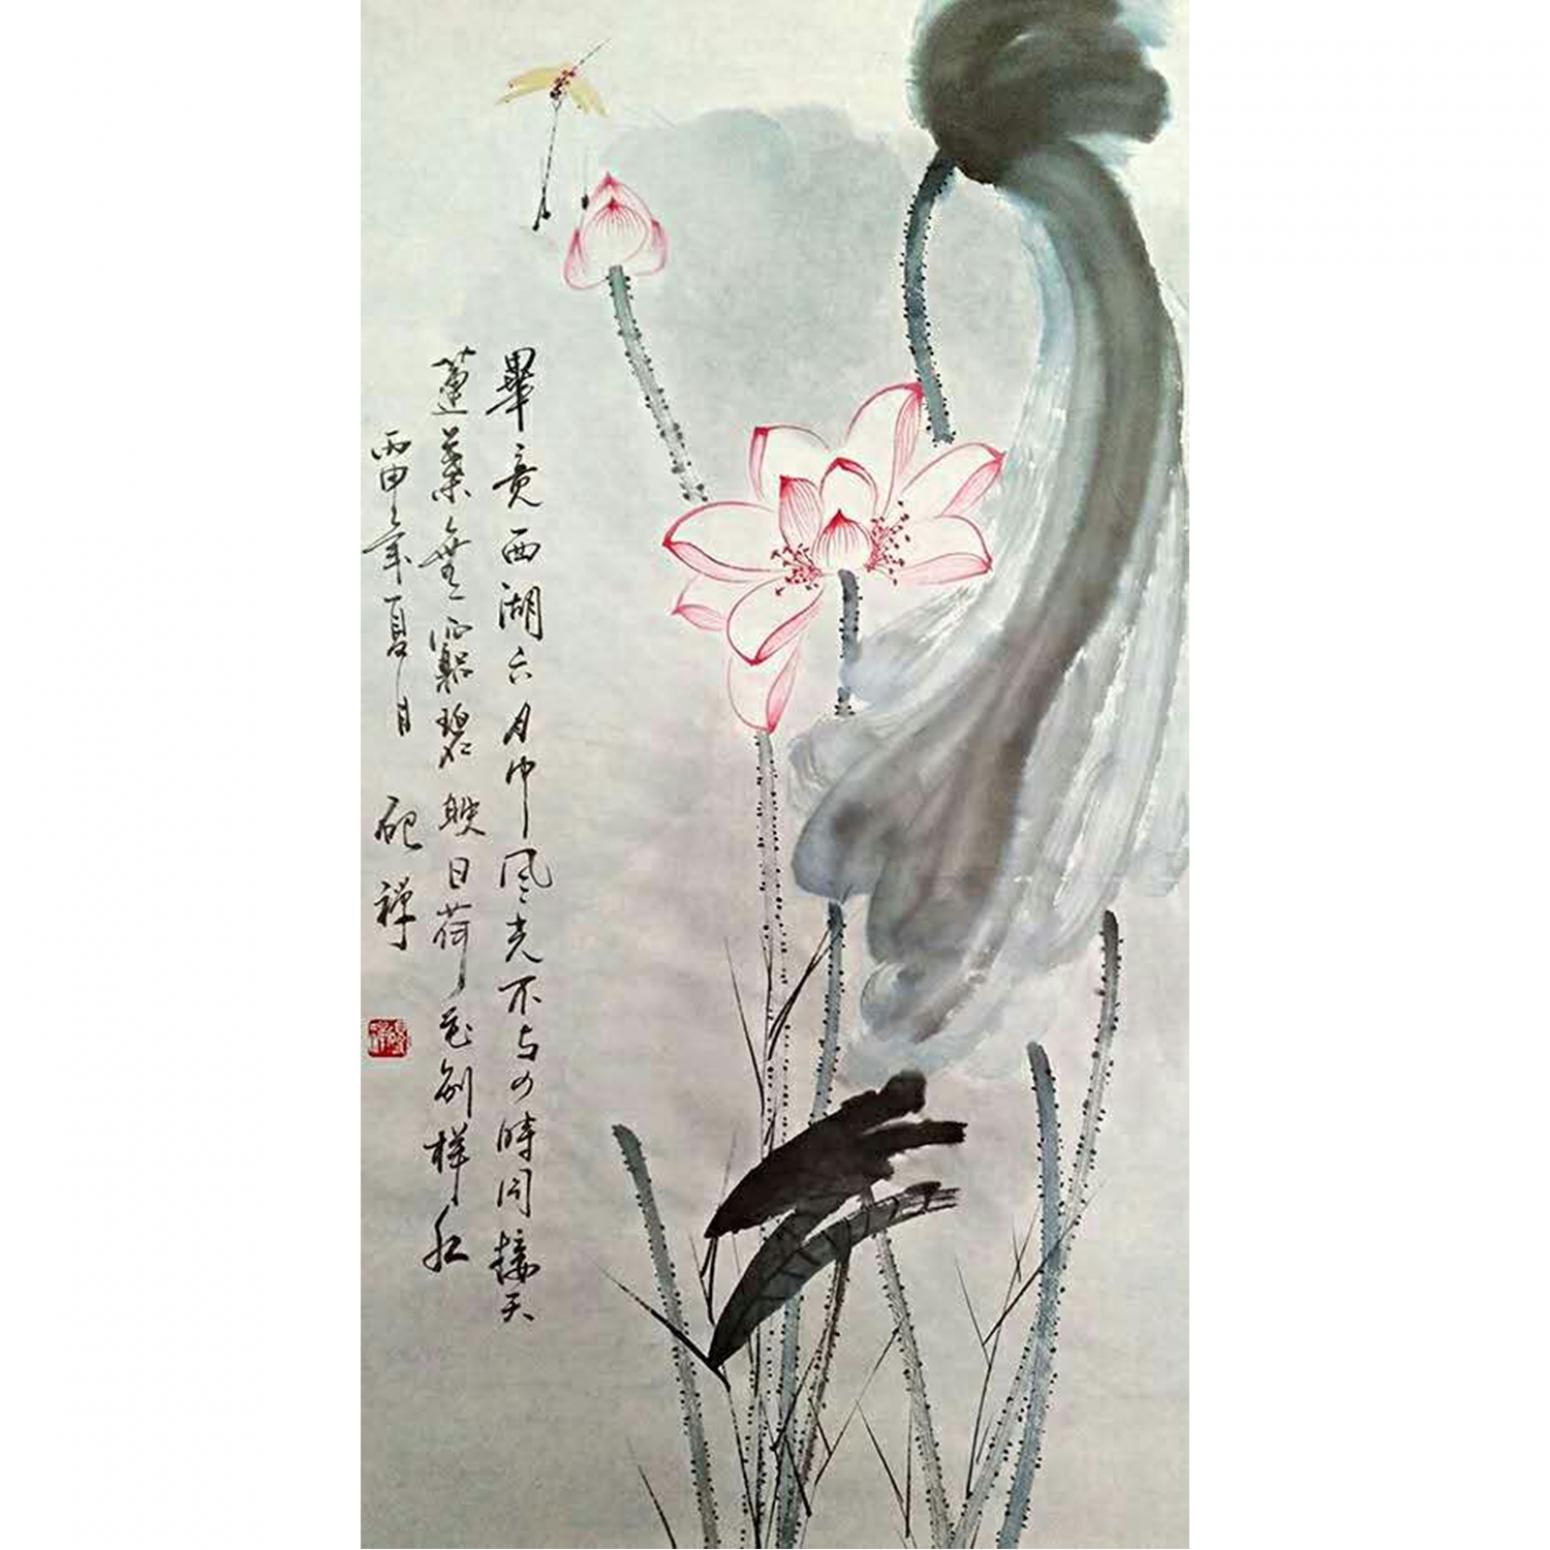 畢竟西湖六月中風光不与四時同接天
蓮葉無窮碧映日荷花别样红
丙申年夏月 砚禅